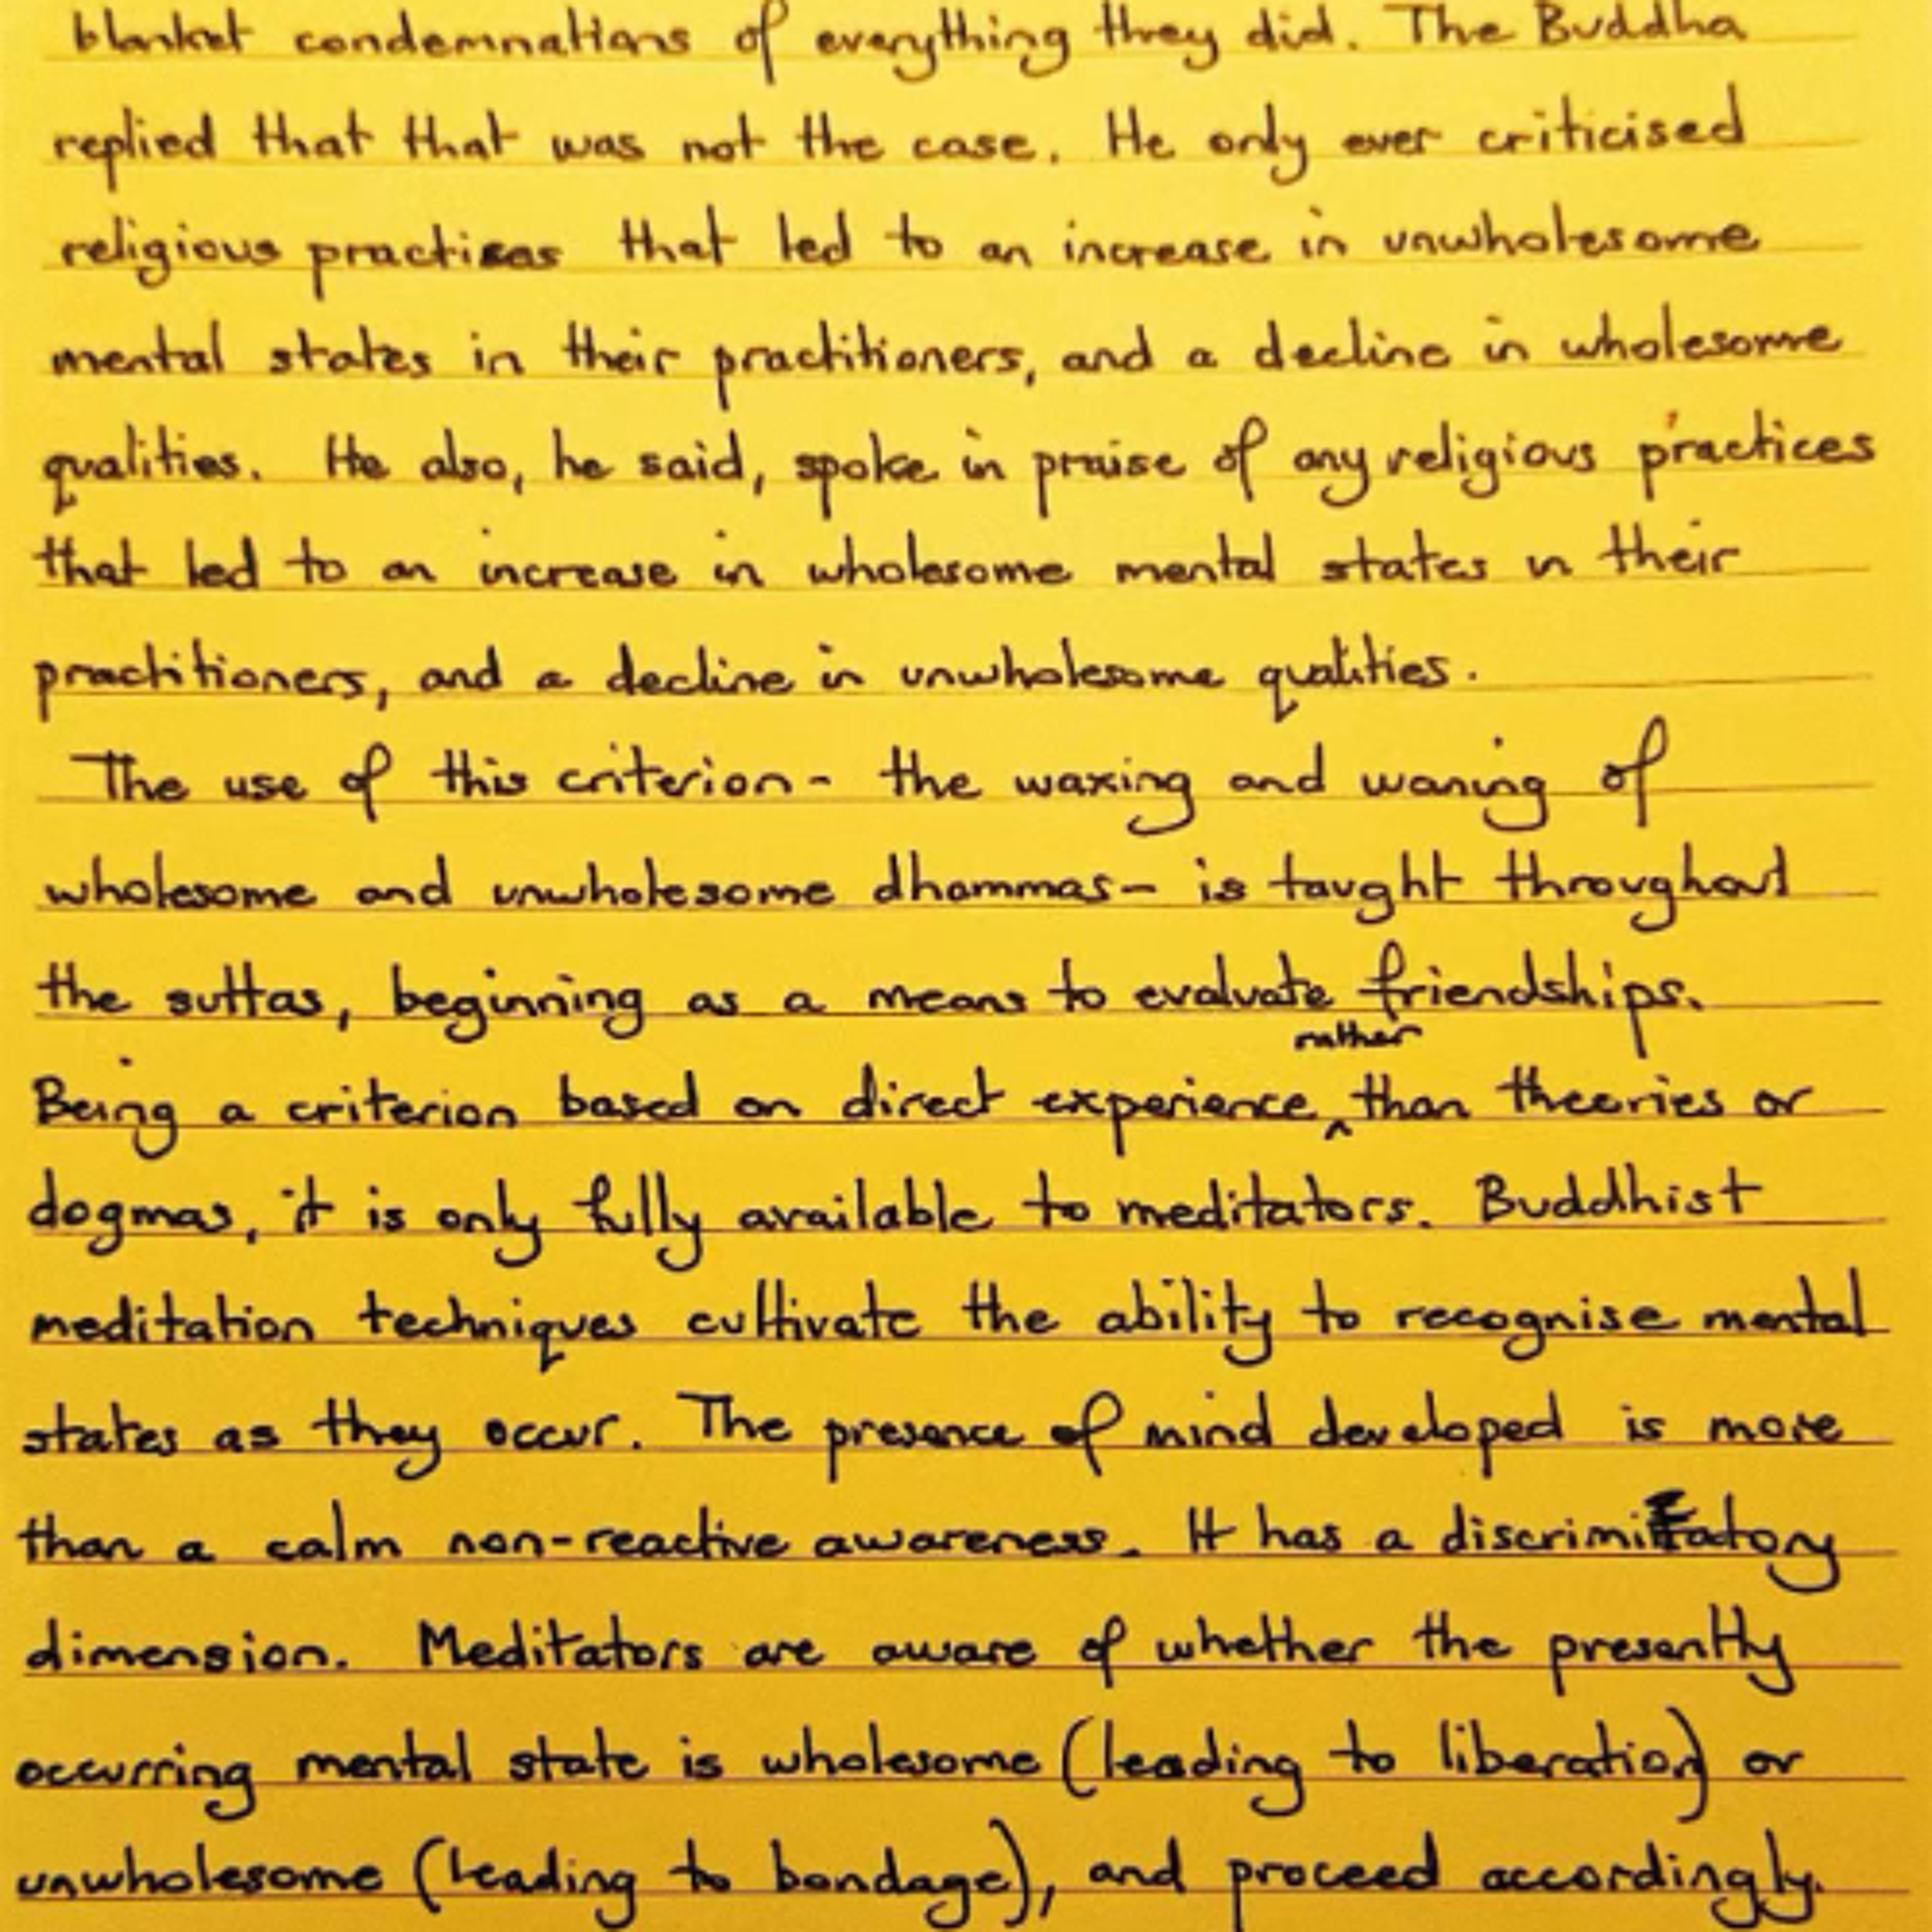 blanket condemnations of everything they did. The Buddha
replied that that was not the case. He only ever criticised
religious practices that led to an increase in unwholesome
mental states in their practitioners, and a decline in wholesome
qualities. He also, he said, spoke in praise of any religious practices
that led to an increase in wholesome mental states in their
practitioners, and a decline in unwholesome qualities.
The use of this criterion - the waxing and waning of
wholesome and unwholesome dhammas - is taught throughout
the suttas, beginning as a means to evaluate friendships.
Being a criterion based on direct experience rather than theories or
dogmas, it is only fully available to meditators. Buddhist
meditation techniques cultivate the ability to recognise mental
states as they occur. The presence of mind developed is more
than a calm non-reactive awareness. It has a discriminatory
dimension. Meditators are aware of whether the presently
occurring mental state is wholesome (leading to liberation) or
unwholesome (leading to bondage), and proceed accordingly.